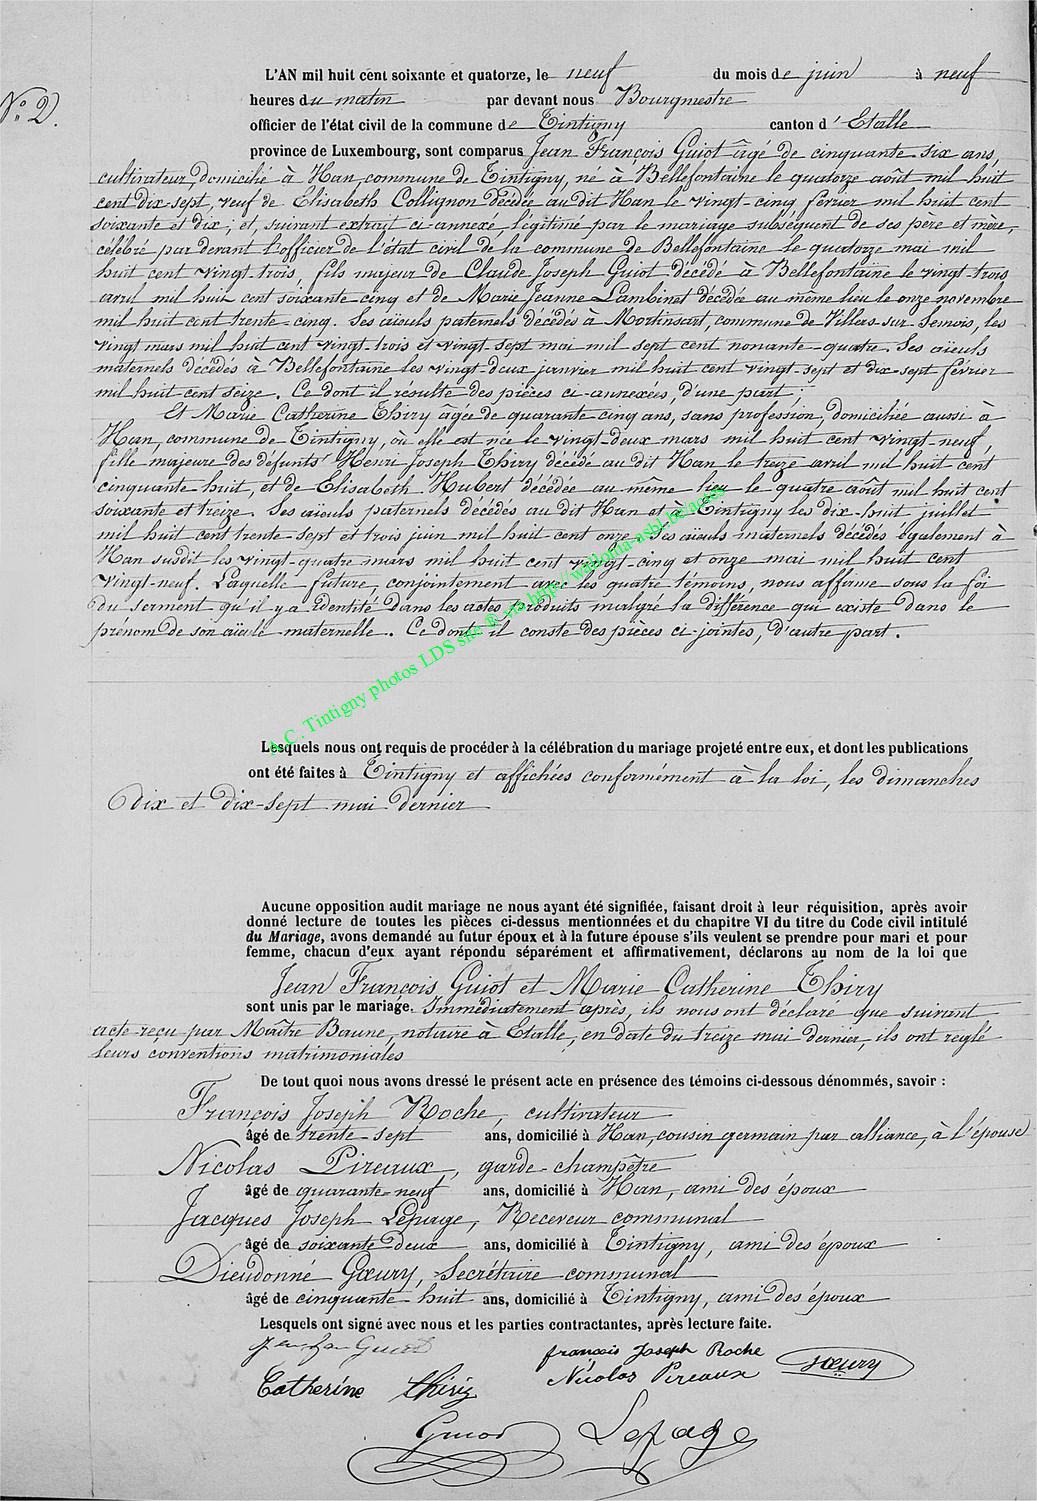 N° 2.
L'AN mil huit cent soixante et quatorze, le neuf du mois de juin à neuf
heures du matin par devant nous Bourgmestre
officier de l'état civil de la commune de Tintigny canton d'Etalle
province de Luxembourg, sont comparus Jean François Guiot âgé de cinquante-six ans,
cultivateur, domicilié à Han, commune de Tintigny, né à Bellefontaine le quatorze août mil huit
cent dix-sept, veuf de Elisabeth Collignon décédée au dit Han le vingt-cinq février mil huit cent
soixante et dix; et, suivant extrait ci-annexé, légitimé par le mariage subséquent de ses père et mère,
célébré par devant l'officier de l'état civil de la commune de Bellefontaine le quatorze mai mil
huit cent vingt-trois, fils majeur de Claude Joseph Guiot décédé à Bellefontaine le vingt-trois
avril mil huit cent soixante-cinq et de Marie Jeanne Lambinet décédée au même lieu le onze novembre
mil huit cent trente-cinq. Ses aïeuls paternels décédés à Mortinsart, commune de Villers-sur-Semois, les
vingt mars mil huit cent vingt-trois et vingt-sept mai mil sept cent nonante-quatre. Ses aïeuls
maternels décédés à Bellefontaine les vingt-deux janvier mil huit cent vingt-sept et dix-sept février
mil huit cent seize. Ce dont il résulte des pièces ci-annexées, d'une part;
Et Marie Catherine Thiry âgée de quarante-cinq ans, sans profession, domiciliée aussi à
Han, commune de Tintigny, où elle est née le vingt-deux mars mil huit cent vingt-neuf,
fille majeure des défunts Henri Joseph Thiry décédé au dit Han le treize avril mil huit cent
cinquante-huit, et de Elisabeth Hubert décédée au même lieu le quatre août mil huit cent
soixante et treize. Ses aïeuls paternels décédés au dit Han et à Tintigny les dix-huit juillet
mil huit cent trente-sept et trois juin mil huit cent onze. Ses aïeuls maternels décédés également à
Han susdit les vingt-quatre mars mil huit cent vingt-cinq et onze mai mil huit cent
vingt-neuf. Laquelle future, conjointement avec les quatre témoins, nous affirme sous la foi
du serment qu'il y a identité dans les actes produits malgré la différence qui existe dans le
prénom de son aïeule maternelle. Ce dont il conste des pièces ci-jointes, d'autre part.
A.C. Tintigny photos LDS site ® via http://wallonia-asbl.be/actes
Lesquels nous ont requis de procéder à la célébration du mariage projeté entre eux, et dont les publications
ont été faites à Tintigny et affichées conformément à la loi, les dimanches
dix et dix-sept mai dernier
Aucune opposition audit mariage ne nous ayant été signifiée, faisant droit à leur réquisition, après avoir
donné lecture de toutes les pièces ci-dessus mentionnées et du chapitre VI du titre du Code civil intitulé
du Mariage, avons demandé au futur époux et à la future épouse s'ils veulent se prendre pour mari et pour
femme, chacun d'eux ayant répondu séparément et affirmativement, déclarons au nom de la loi que
Jean François Guiot et Marie Catherine Thiry
sont unis par le mariage. Immédiatement après, ils nous ont déclaré que suivant
acte reçu par Maître Baune, notaire à Etalle, en date du treize mai dernier, ils ont réglé
leurs conventions matrimoniales
De tout quoi nous avons dressé le présent acte en présence des témoins ci-dessous dénommés, savoir :
François Joseph Roche, cultivateur
âgé de trente-sept ans, domicilié à Han, cousin germain par alliance, à l'épouse
Nicolas Pireaux, garde-champêtre
âgé de quarante-neuf ans, domicilié à Han, ami des époux
Jacques Joseph Lepage, Receveur communal
âgé de soixante deux ans, domicilié à Tintigny, ami des époux
Dieudonné Gœury, Secrétaire communal
âgé de cinquante-huit ans, domicilié à Tintigny, ami des époux
Lesquels ont signé avec nous et les parties contractantes, après lecture faite.
Guiot françois Joseph Roche
Catherine thiry Nicolas Pireaux Gœury
Guiot Lepage